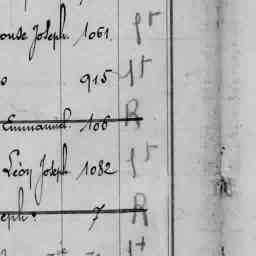 onse Joseph. 1061. St
o 915 St
Emmanuel. 106 R
Léon Joseph 1082 St
eph. 7 R
St